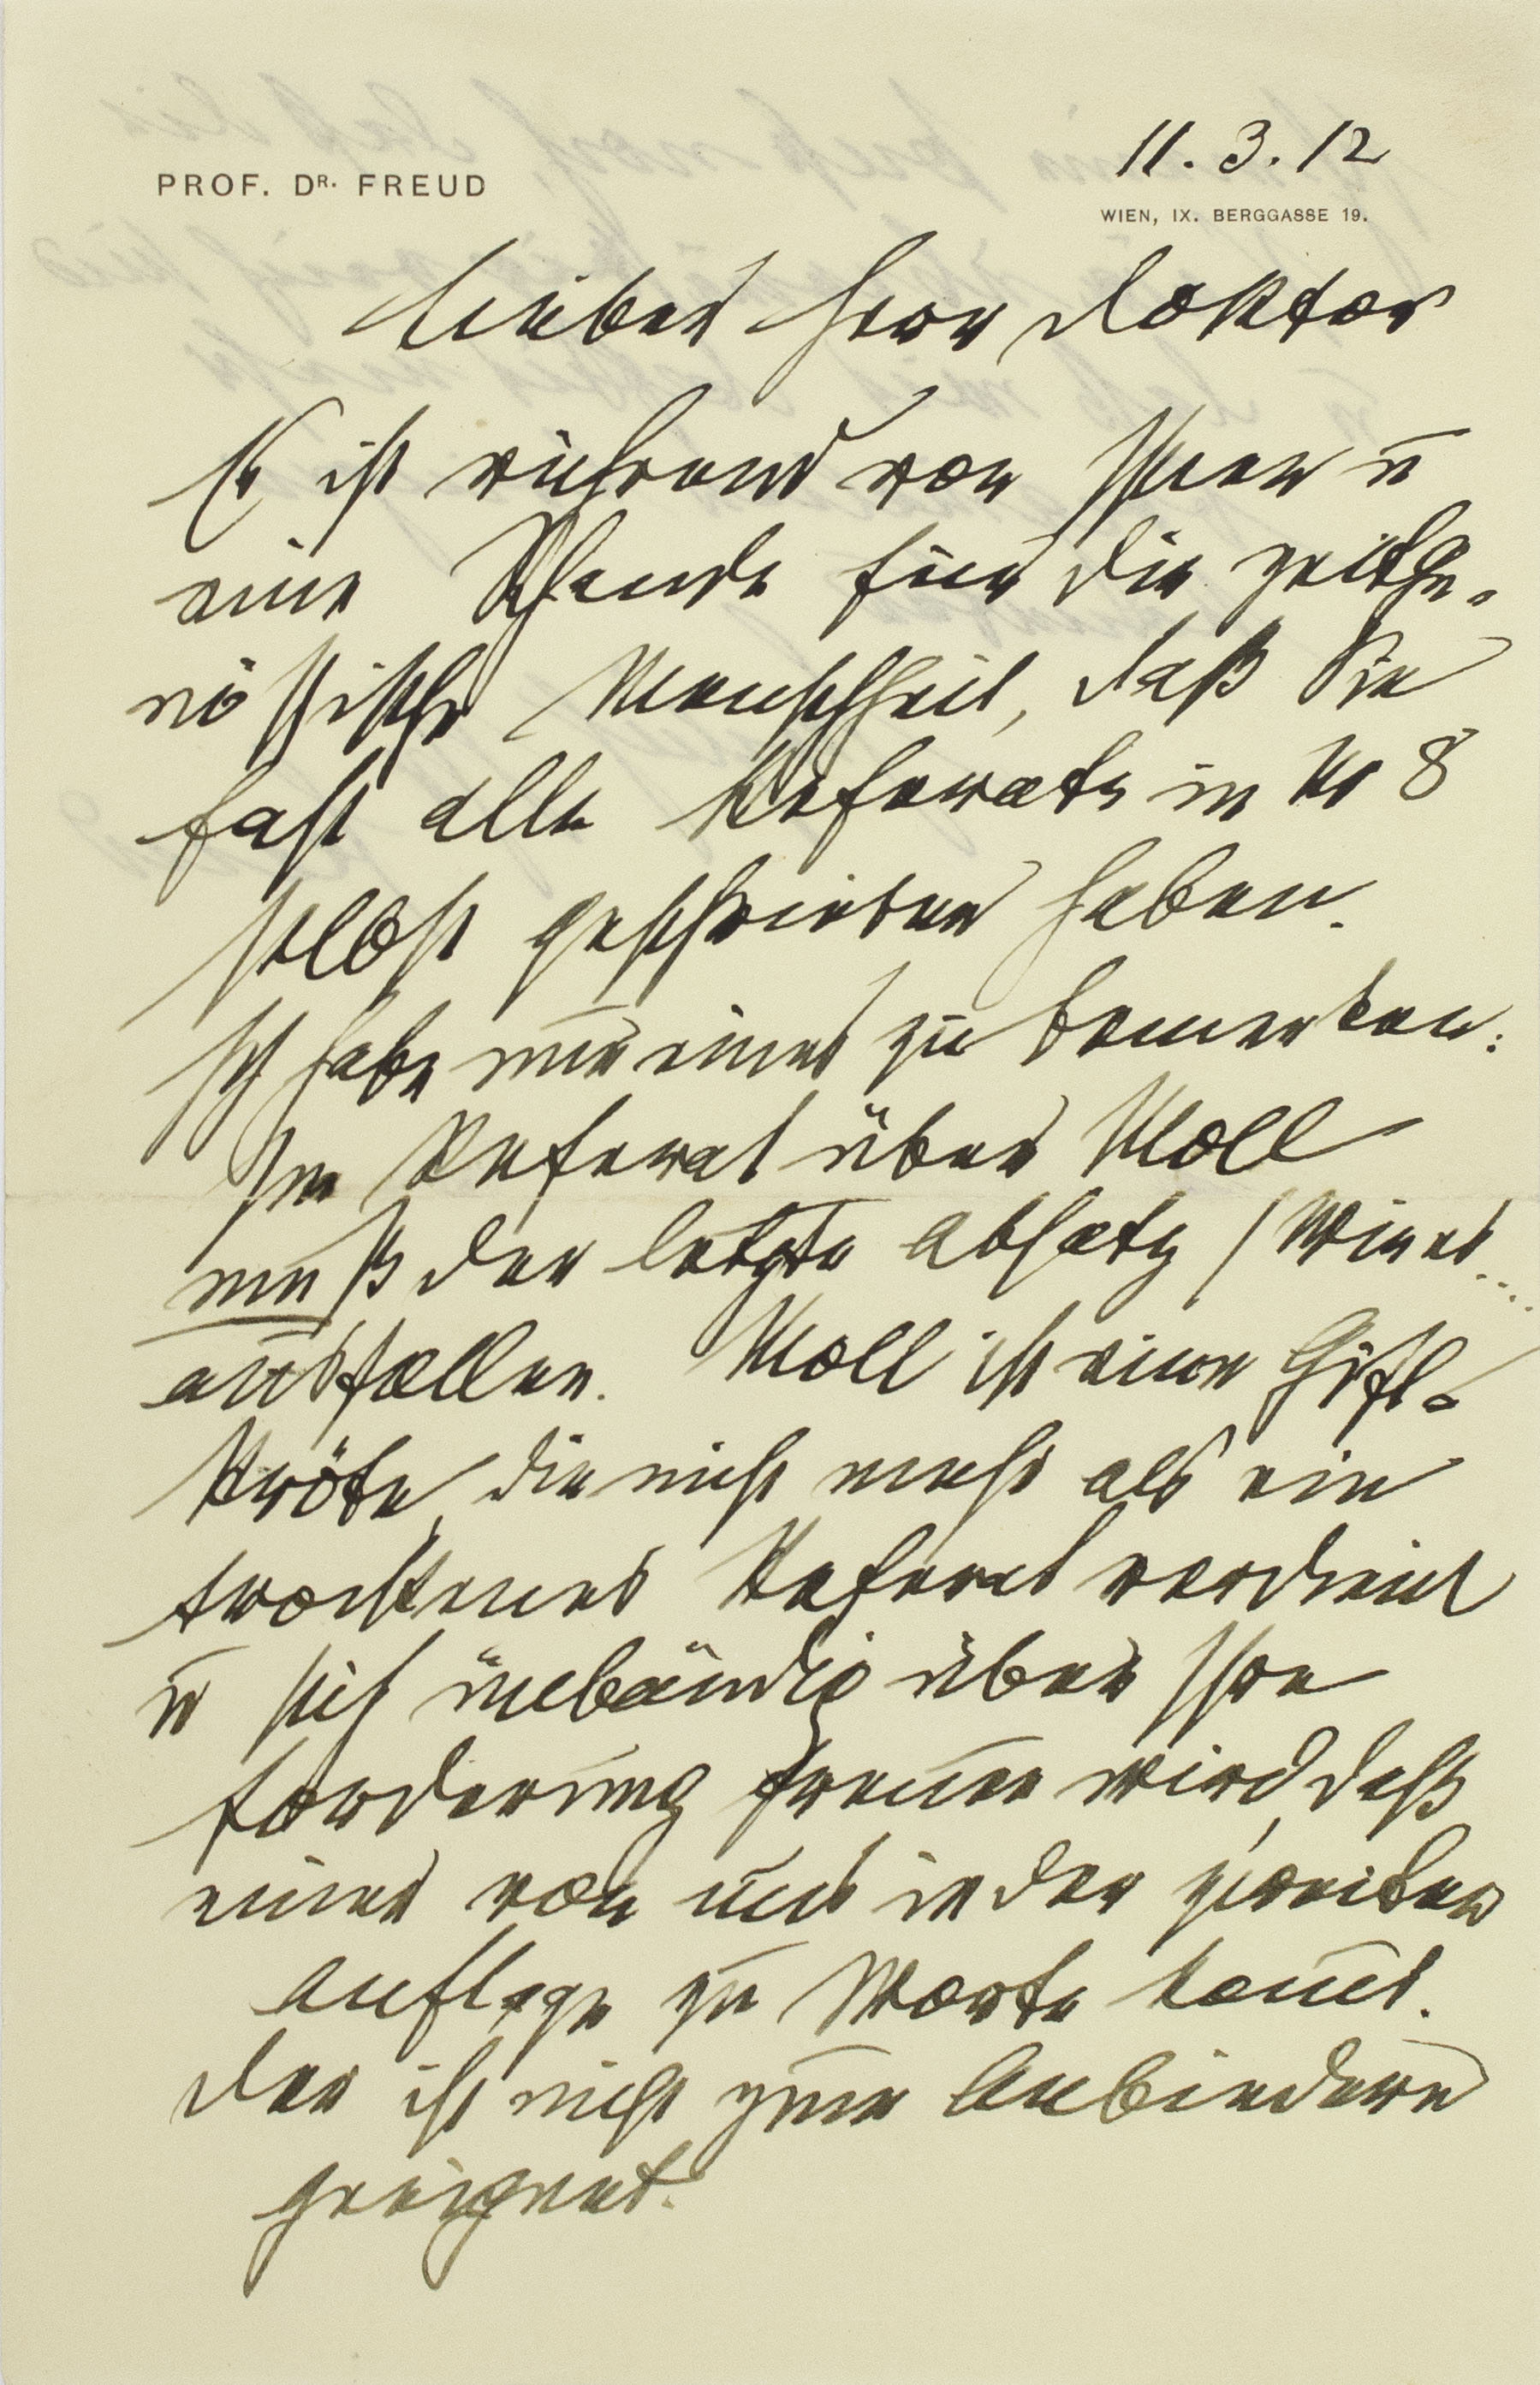 11.3.12
PROF. DR. FREUD
WIEN, IX. BERGGASSE 19.
Lieber Herr Doktor
Es ist rührend von Ihnen u
eine Schande für die zeitge-
nössische Menschheit, daß Sie
fast alle Referate in No 8
selbst geschrieben haben.
Ich habe nur eines zu bemerken:
Im Referat über Moll
muß der letzte Absatz (Wiener...
ausfallen. Moll ist eine Gift-
kröte, die nicht mehr als ein
trockenes Referat verdient
u sich unbändig über Ihre
Forderung freuen wird, daß
einer von uns in der zweiten
Auflage zu Worte komt.
Der ist nicht zum Anbiedern
geeignet.